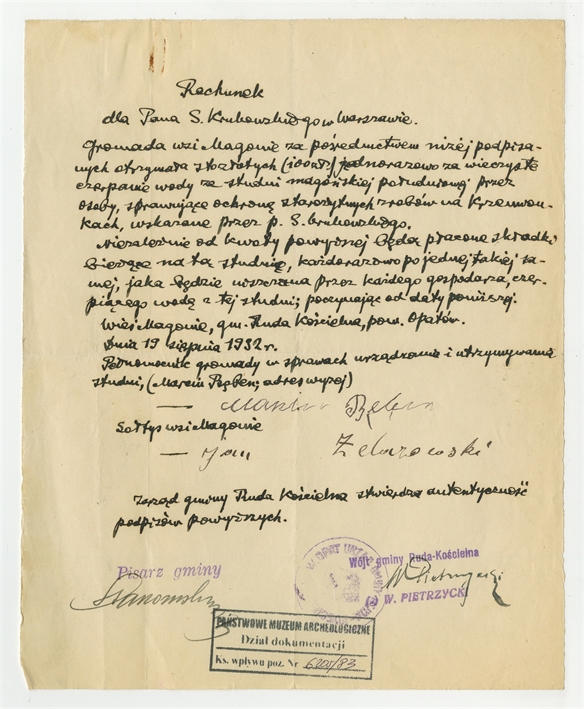 Rachunek
dla Pana S. Krukowskiego w Warszawie.
Gromada wsi Magonie za pośrednictwem niżej podpisa-
nych otrzymała sto złotych (100 zł) jednorazowo za wieczyste
czerpanie wody ze studni magońskiej południowej przez
osoby, sprawujące ochronę starożytnych zrobów na Krzemion-
kach, wskazane przez p. S. Krukowskiego.
Niezależnie od kwoty powyższej będą płacone składki
bieżące na tą studnię, każdorazowo po jednej takiej sa-
mej, jaka będzie uiszczana przez każdego gospodarza, czer-
piącego wodę z tej studni; poczynając od daty poniższej.
Wieś Magonie, gm. Ruda Kościelna, pow. Opatów.
Dnia 19 sierpnia 1932 r.
Pełnomocnik gromady w sprawach urządzania i utrzymywania
studni, (Marcin ; adres wyżej)
— Marcin
Sołtys wsi Magonie
— Jan
Zarząd gminy Ruda Kościelna stwierdza autentyczność
podpisów powyższych.
Pisarz gminy
Wójt gminy Ruda-Kościelna
W. Pietrzycki
(-) W. PIETRZYCKI
PAŃSTWOWE MUZEUM ARCHEOLOGICZNE
Dział dokumentacji
Ks. wpływu poz. Nr 6205/83